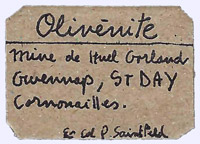 Olivénite
Mine de Huel Gorland
Gwennap, St DAY
Cornouailles.
Ex Col P. Saintfeld